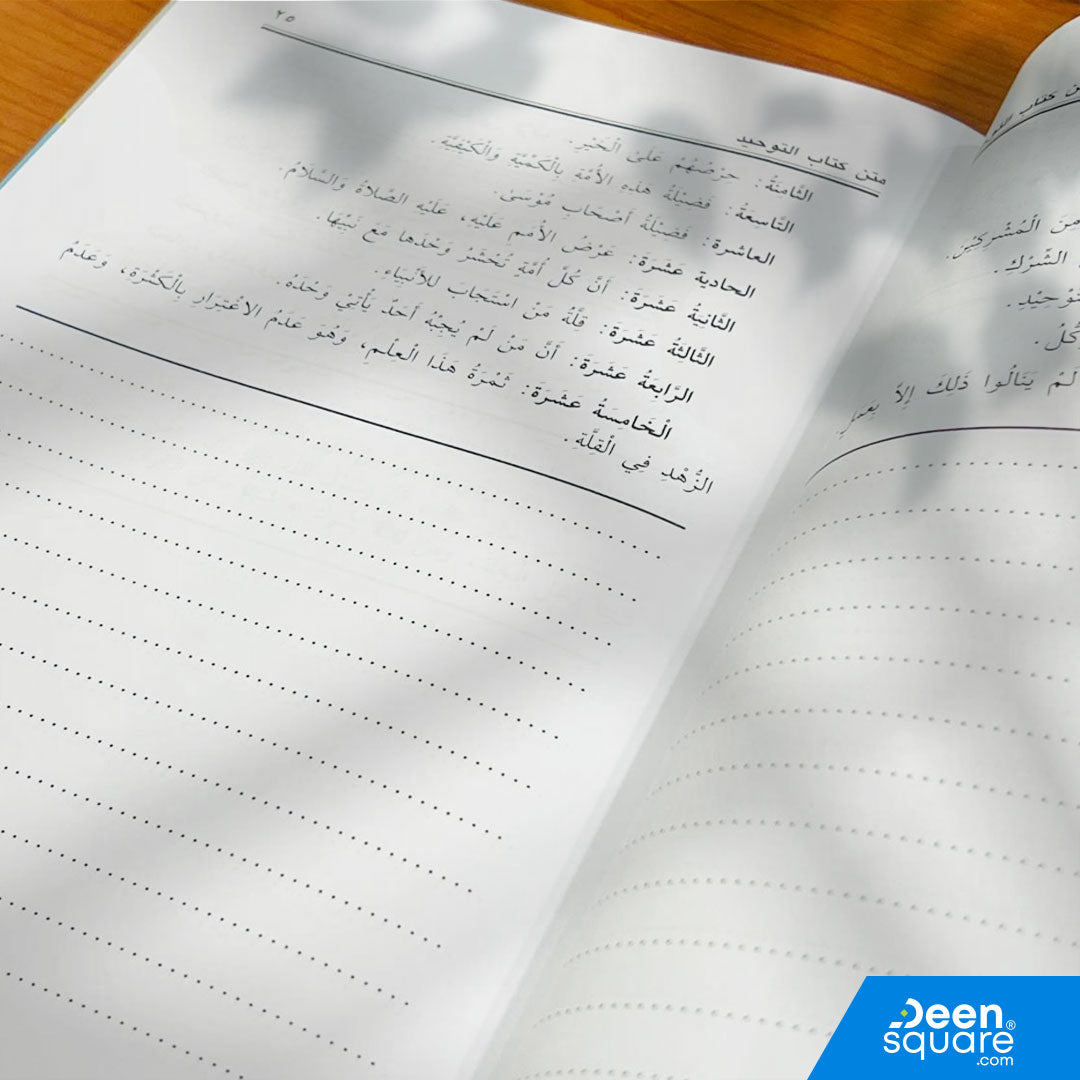 ٢٥
متن كتاب التوحيد
الثَّامِنَةُ: حِرْصُهُمْ عَلَى الْخَيْرِ.
التَّاسِعَةُ: فَضِيْلَةُ هَذِهِ الأُمَّةِ بِالْكَمِّيَّةِ وَالْكَيْفِيَّةِ.
العاشرة: فَضِيْلَةُ أَصْحَابِ مُوْسَىٰ.
الحادية عَشَرَة: عَرْضُ الأُمَمِ عَلَيْهِ، عَلَيْهِ الصَّلاةُ وَالسَّلَامُ.
الثَّانِيَةُ عَشَرَةَ: أَنَّ كُلَّ أُمَّةٍ تُحْشَرُ وَحْدَها مَعَ نَبِيِّهَا.
الثَّالِثَةُ عَشَرَةَ: قِلَّةُ مَنْ اسْتَجَابَ للأَنْبِيَاءِ.
الرَّابِعَةُ عَشَرَةَ: أَنَّ مَنْ لَمْ يُجِبْهُ أَحَدٌ يَأْتِيْ وَحْدَهُ.
الْخَامِسَةُ عَشَرَةَ: ثَمْرَةُ هَذَا الْعِلْمِ، وَهُوَ عَدَمُ الاغْتِرَارِ بِالْكَثْرَةِ، وَعَدَمُ
الزُّهْدِ فِي الْقِلَّةِ.
كتاب
مِنَ الْمُشْرِكِيْنَ.
الشِّرْكِ.
لَمْ يَنَالُوا ذَلِكَ إِلاَّ بِعَمَلٍ
Deen®
square
.com